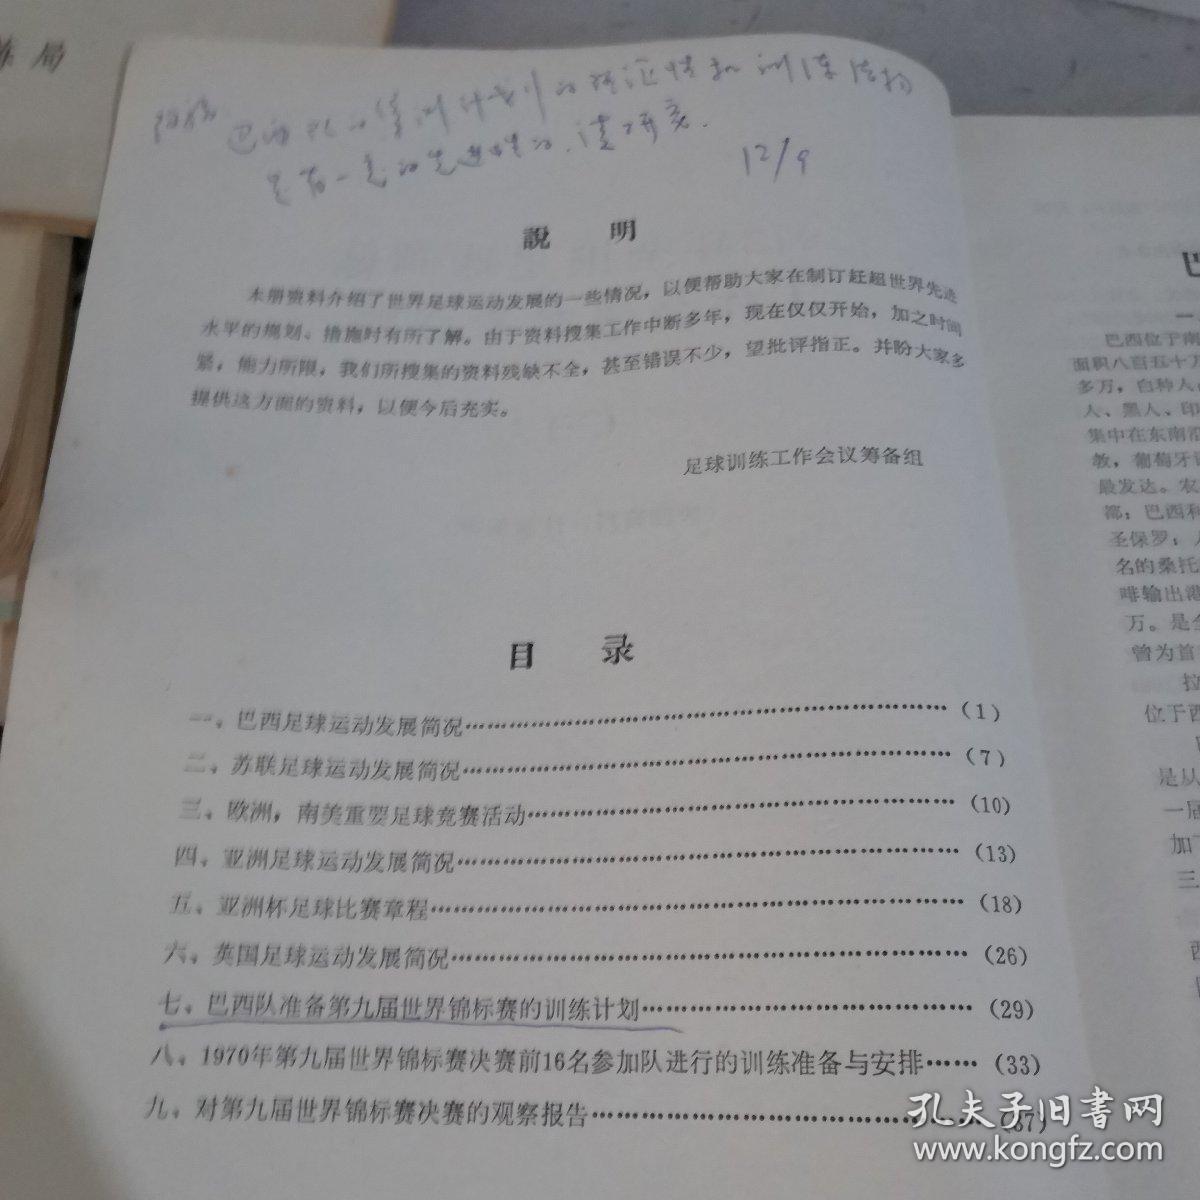 局
12/9
說 明
本册资料介绍了世界足球运动发展的一些情况，以便帮助大家在制订赶超世界先进
水平的规划、措施时有所了解。由于资料搜集工作中断多年，现在仅仅开始，加之时间
紧，能力所限，我们所搜集的资料残缺不全，甚至错误不少，望批评指正。并盼大家多
提供这方面的资料，以便今后充实。
足球训练工作会议筹备组
目 录
一、巴西足球运动发展简况……………(1)
二、苏联足球运动发展简况……………(7)
三、欧洲，南美重要足球竞赛活动……………(10)
四、亚洲足球运动发展简况……………(13)
五、亚洲杯足球比赛章程……………(18)
六、英国足球运动发展简况……………(26)
七、巴西队准备第九届世界锦标赛的训练计划……………(29)
八、1970年第九届世界锦标赛决赛前16名参加队进行的训练准备与安排……(33)
九、对第九届世界锦标赛决赛的观察报告……………(37)
一
巴西位于南
面积八百五十万
多万，白种人
人、黑人、印
集中在东南沿
教，葡萄牙语
最发达。农
部；巴西利
圣保罗；
名的桑托
啡输出港
万。是全
曾为首
拉
位于西
是从
一届
加
三
西
孔夫子旧書网
www.kongfz.com